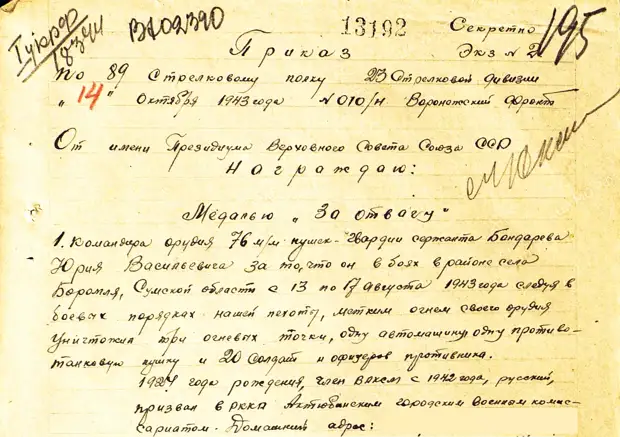 13192
Секретно
195
18344
Приказ
Экз N 2
по 89 Стрелковому полку 23 Стрелковой дивизии
„14" Октября 1943 года N 010/н Воронежский Фронт
От имени Президиума Верховного Совета Союза ССР
Награждаю:
Медалью „За отвагу"
1. Командира орудия 76 м/м пушек - гвардии сержанта Бондарева
Юрия Васильевича за то, что он в боях в районе села
Боромля, Сумской области с 13 по 17 августа 1943 года следуя в
боевых порядках нашей пехоты, метким огнем своего орудия
уничтожил три огневых точки, одну автомашину, одну противо-
танковую пушку и 20 солдат и офицеров противника.
1924 года рождения, член ВЛКСМ с 1942 года, русский,
призван в РККА Актюбинским городским военным комис-
сариатом. Домашний адрес: